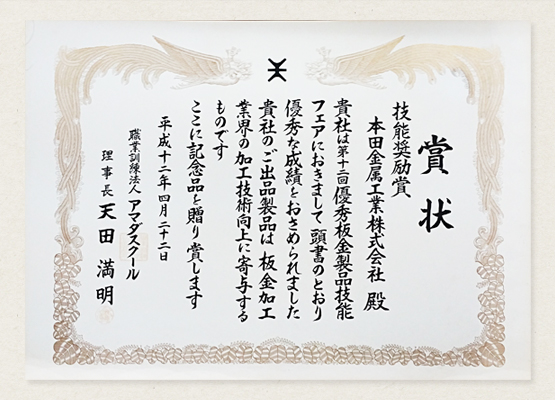 賞状
技能奨励賞
本田金属工業株式会社 殿
貴社は第十二回優秀板金製品技能
フェアにおきまして頭書のとおり
優秀な成績をおさめられました
貴社のご出品製品は板金加工
業界の加工技術向上に寄与する
ものです
ここに記念品を贈り賞します
平成十二年四月二十二日
職業訓練法人 アマダスクール
理事長 天田満明